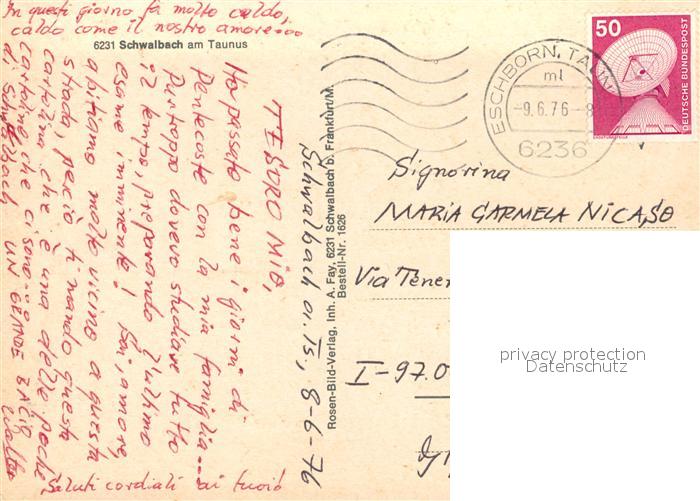 In questi giorno fa molto caldo,
caldo come il nostro amore....
6231 Schwalbach am Taunus
Schwalbach a. TS., 8-6-76
TESORO MIO,
Ho passato bene i giorni di
Pentecoste con la mia famiglia...
Purtroppo dovevo studiare tutto
il tempo, preparando l'ultimo
esame imminente! Sai, amore,
abitiamo molto vicino a questa
strada, perciò ti mando questa
cartolina che è una delle poche
cartoline che ci sono
di Schwalbach UN GRANDE BACIO
Walter
Saluti cordiali ai tuoi!
Rosen-Bild-Verlag, Inh. A. Fay, 6231 Schwalbach b. Frankfurt/M.
Bestell-Nr. 1626
ESCHBORN, TAUN
ml
-9.6.76-8
6236
50
DEUTSCHE BUNDESPOST
Signorina
MARIA CARMELA NICASO
Via Tener
I-97.0
privacy protection
Datenschutz